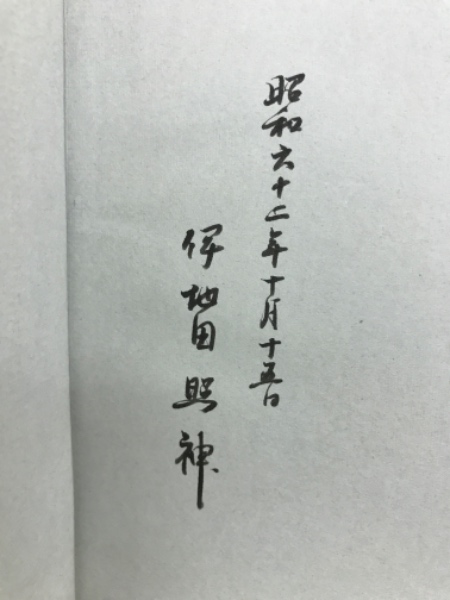 昭和六十二年十月十五日
伊地田照神